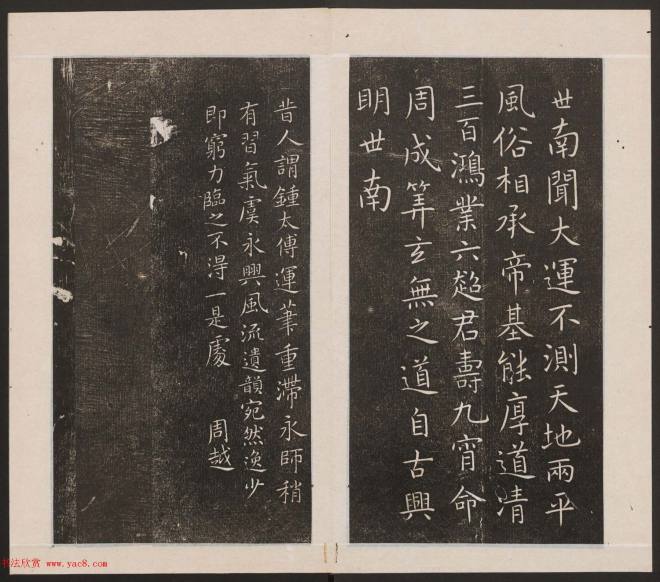 世南聞大運不測天地兩平
風俗相承帝基能厚道清
三百鴻業六超君壽九霄命
周成筭玄無之道自古興
明世南
昔人謂鍾太傅運筆重滯永師稍
有習氣虞永興風流遺韻宛然逸少
即窮力臨之不得一是處
周越
书法欣赏 www.yac8.com